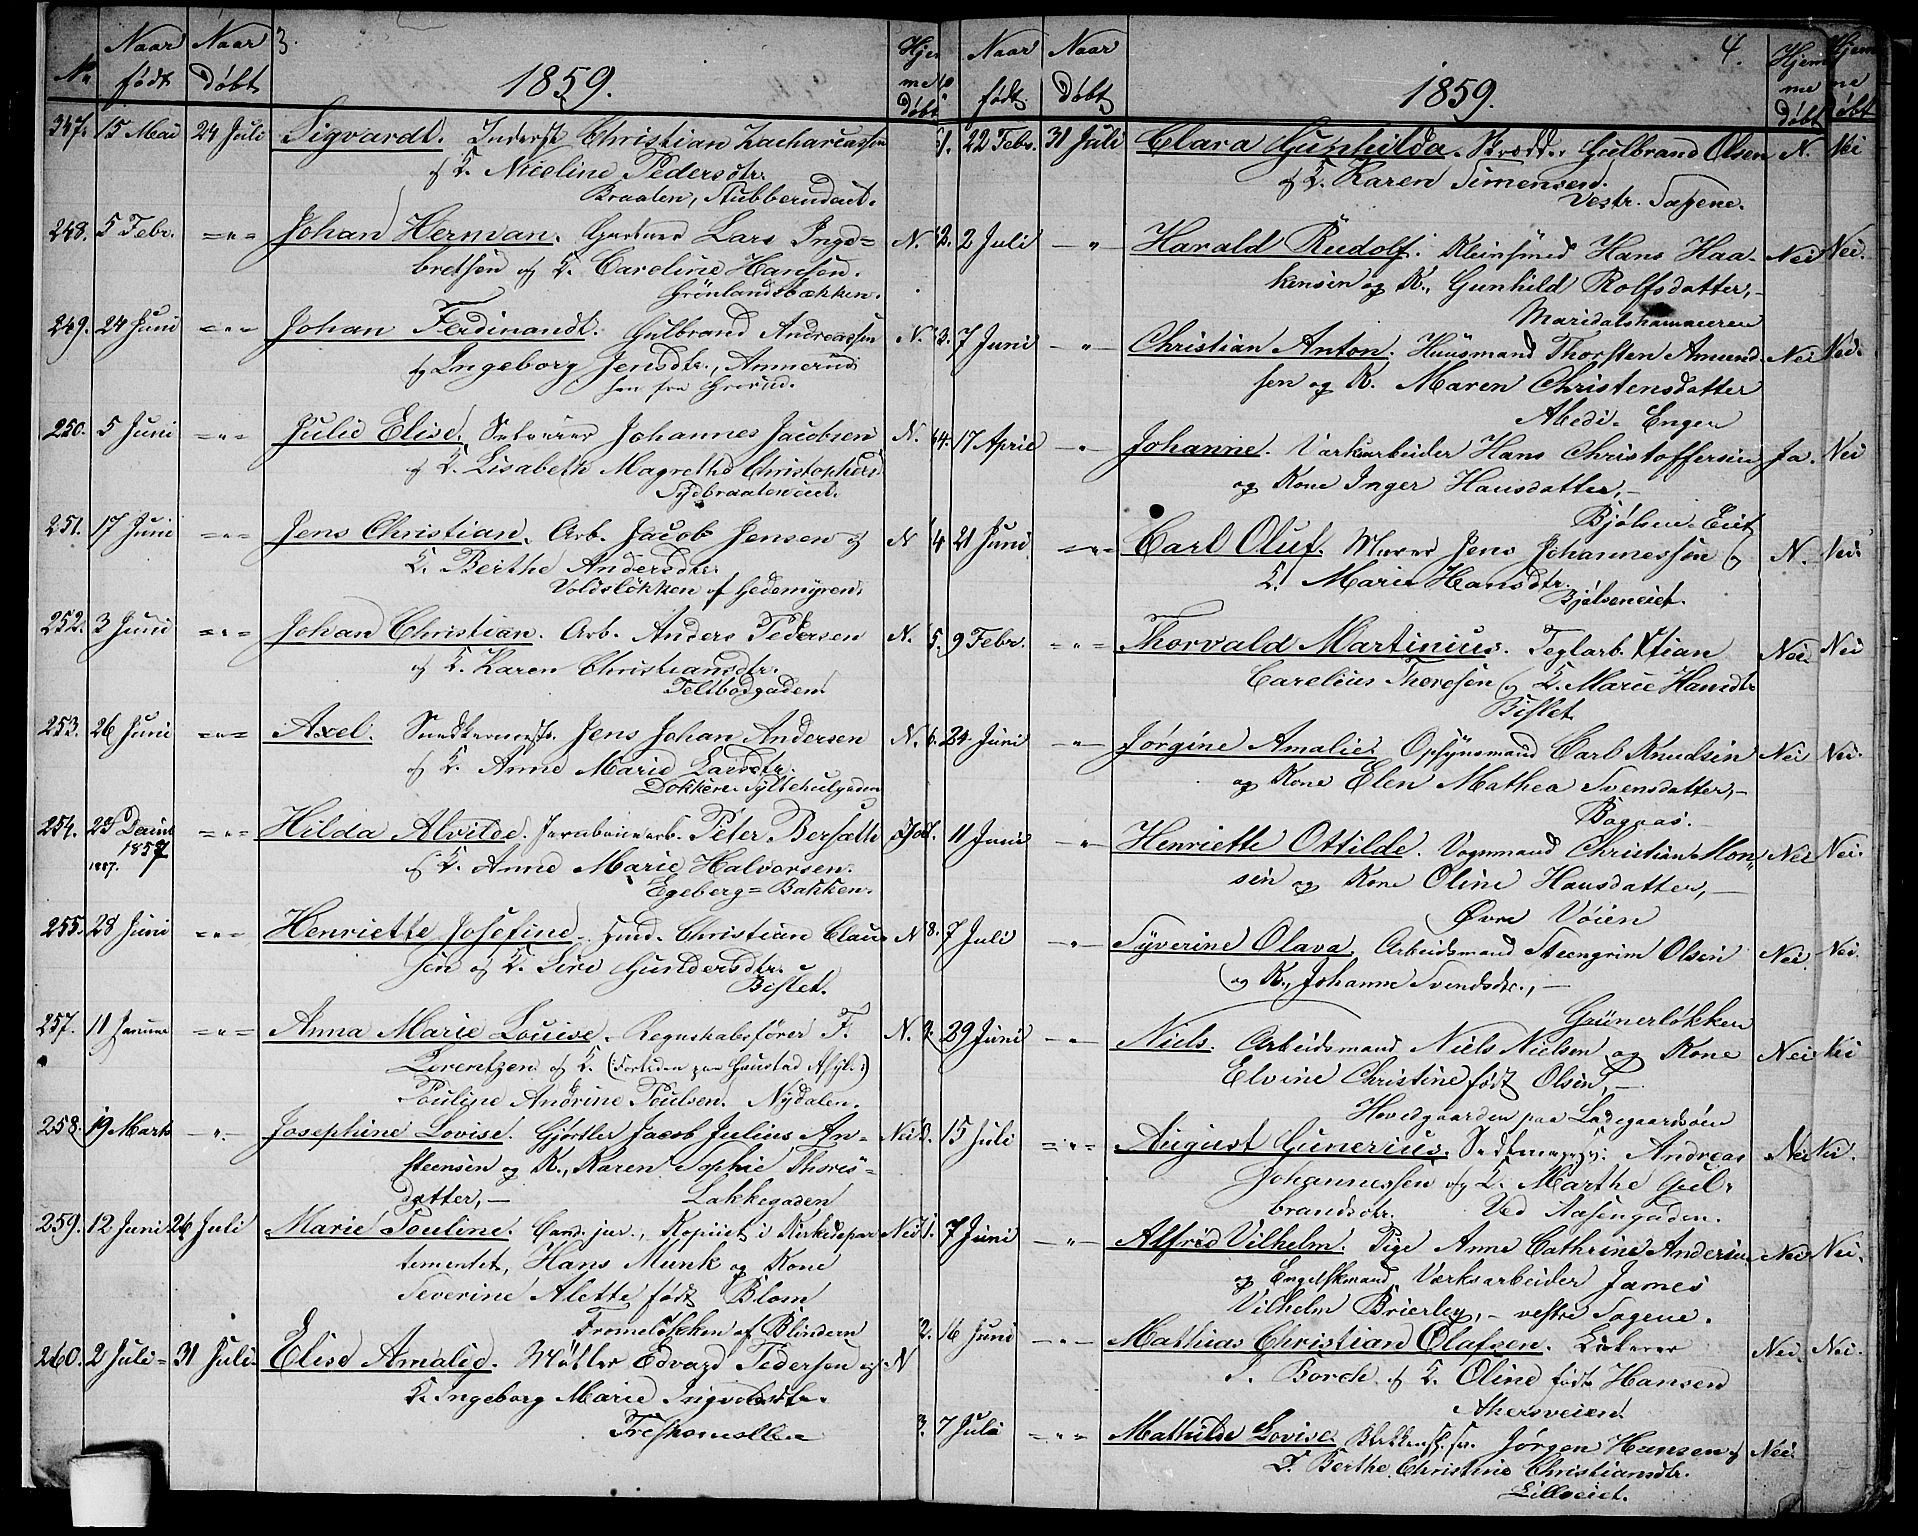 3.
No Naar født Naar døbt 1859. Hjemme døbt
347. 15 Mai 24 Juli Sigvardt. Inderst Christian Zachariassen
og K. Nicoline Pedersdtr.
Braaten, Stubberudeiet.
248. 5 Febr. Johan Herman. Gartner Lars Inge- N.
bretsen og K. Caroline Hansen.
Grønlandsbækken.
249. 24 Juni Johan Ferdinandt. Gulbrand Andreassen N.
og Ingeborg Jensdtr., Ammerud
250. 5 Juni Julie Elise. Johannes Jacobsen N.
og K. Lisabeth Magrethe Christophers
251. 17 Juni Jens Christian. Arb. Jacob Jensen og N
K. Berthe Andersdtr.
Voldsløkken af Gedemyren.
252. 3 Juni Johan Christian. Arb. Anders Pedersen N.
og K. Karen Christiansdtr.
253. 26 Juni Axel. Snedkermestr. Jens Johan Andersen N.
og K. Anne Marie Larsdtr.
254. 1857 Hilda Alvilde. Peter Bersæth
og K. Anne Marie Halvorsen.
Egeberg=Bakken.
255. 28 Juni Henriette Josefine. Christian Clau- N
sen og K. Siri Guldersdtr.
Bislet.
257. 11 Januar Anna Marie Louise. Regnskabsfører F. N.
Lorentzen og K. (: Fortiden paa Gaustad Asyl :)
Pouline Andrine Poulsen. Nydalen.
258. 19 Marts Josephine Lovise. Gjørtler Jacob Julius An- Nei
steensen og K., Karen Sophie Thores-
datter,- Lakkegaden
259. 12 Juni 26 Juli Marie Pouline. Cand. jur., Kopiist i Kirkedepar Nei
tementet, Hans Munk og Kone
Severine Alette født Blom
Fromeløkken af Blindern
260. 2 Juli 31 Juli. Elise Amalie. Møller Edvard Pedersen og N
K. Ingeborg Marie Ingvoldsdtr.
4.
Naar født Naar døbt 1859. Hjemme døbt Hjemme døbt
1. 22 Febr. 31 Juli Clara Gunhilda. Skrædder Gulbrand Olsen N. Nei
og K. Karen Simensen.
Vestr. Sagene.
2. 2 Juli Harald Rudolf. Kleinsmed Hans Haa- Nei Nei.
kensen og K., Gunhild Rolfsdatter,-
Maridalshammeren
3. 7 Juni Christian Anton. Huusmand Thorsten Amund- Nei Nei.
sen og K. Maren Christensdatter
Engen
4. 17 April Johanne. Værksarbeider Hans Christoffersen Ja. Nei
og Kone Inger Hansdatter,-
Bjølsen-Eiet
4 21 Juni Carl Oluf. Murer Jens Johannessen og N. Nei
K. Marie Hansdtr.
Bjølseneiet.
5. 9 Febr. Thorvald Martinius. Teglarb. Xtian Nei. Nei
Carelius Thoresen og K. Marie Hansdtr
Bislet
6. 24 Juni Jørgine Amalie. Opsynsmand Carl Knudsen Nei Nei.
og Kone Elen Mathea Svensdatter,-
11 Juni Henriette Ottilde. Vognmand Christian Mon- Nei Nei.
sen og Kone Oline Hansdatter,-
Øvre Vøien
8. 7 Juli Syverine Olava. Arbeidsmand Steengrim Olsen Nei. Nei.
og K., Johanne Svendsdtr.,-
Grünerløkken
29 Juni Niels. Arbeidsmand Niels Nielsen og Kone Nei Nei
Elvine Christine født Olsen,-
Hovedgaarden paa Ladegaardsøen
15 Juli August Gunerius. Andreas Nei Nei.
Johannessen og K. Marthe Gul-
brandsdtr. Ved Aasengaden.
1. 7 Juni Alfred Vilhelm. Pige Anne Cathrine Andersen Nei Nei.
og Engelskmand, Værksarbeider James
Vilhelm Brierley,- vestre Sagene.
2. 16 Juni Mathias Christian Olafsen. Nei. Nei.
Borch og K. Oline født Hansen
Akersveien
3. 7 Juli Mathilde Lovise. Jørgen Hansen og Nei.
K. Berthe Christine Christiansdtr.
Lilleeiet.